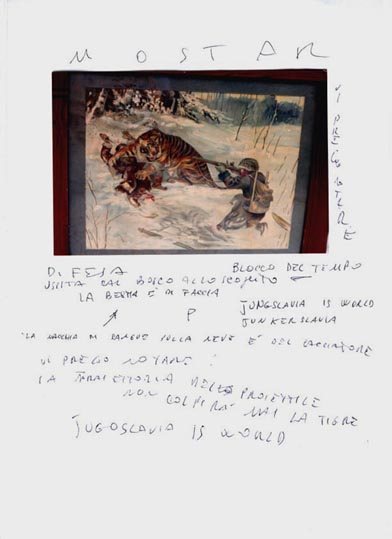 MOSTAR
VI PREGO
DIFESA
BLOCCO DEL TEMPO
USCITA DAL BOSCO ALLO SCOPERTO
LA BESTIA È DI FACCIA
JUNGSLAVIA IS WORLD
JUNKERSLAVIA
P
LA MACCHIA DI SANGUE SULLA NEVE È DEL CACCIATORE
VI PREGO NOTARE!
LA TRAIETTORIA DEL PROIETTILE
NON COLPIRÀ MAI LA TIGRE
JUGOSLAVIA IS WORLD